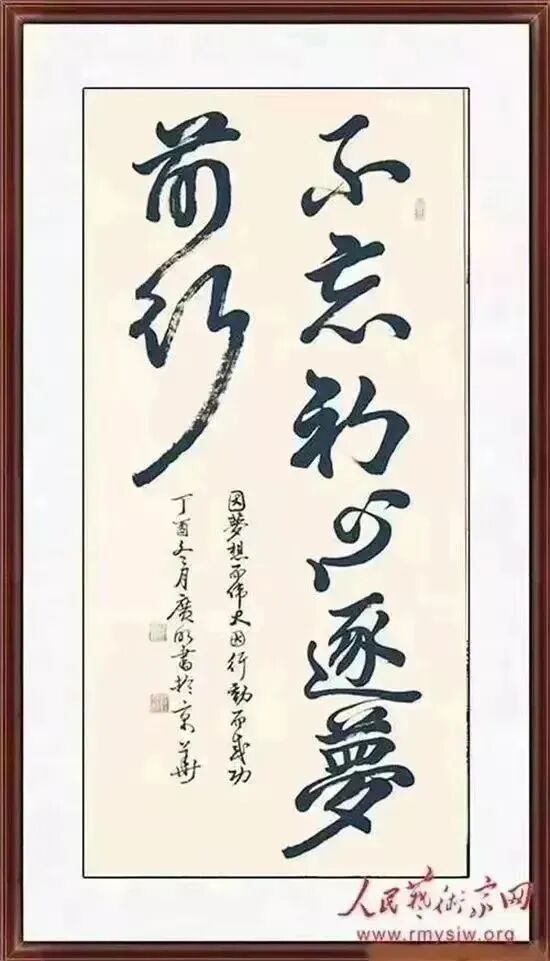 不忘初心逐夢
前行
因夢想而伟大因行動而成功
丁酉冬月廣明書於京華
人民藝術家网
www.rmysjw.org